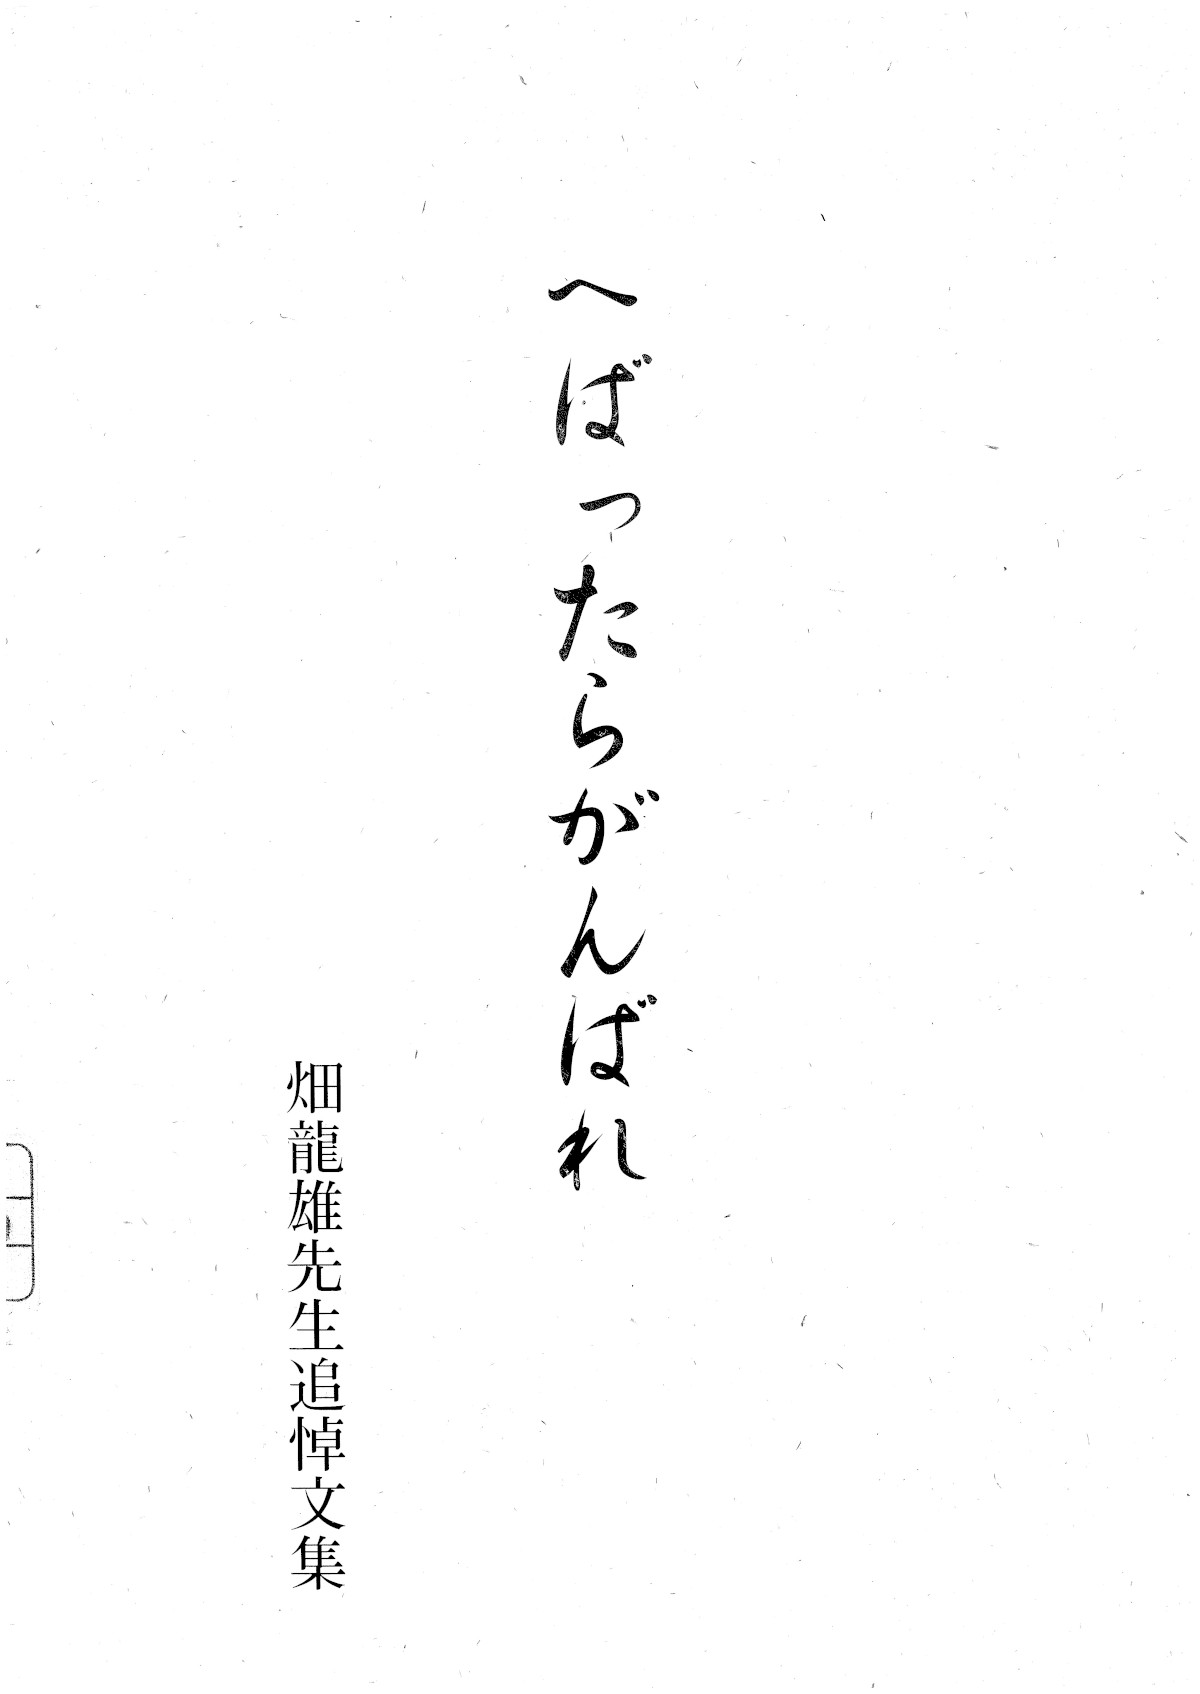 へばったらがんばれ
畑龍雄先生追悼文集